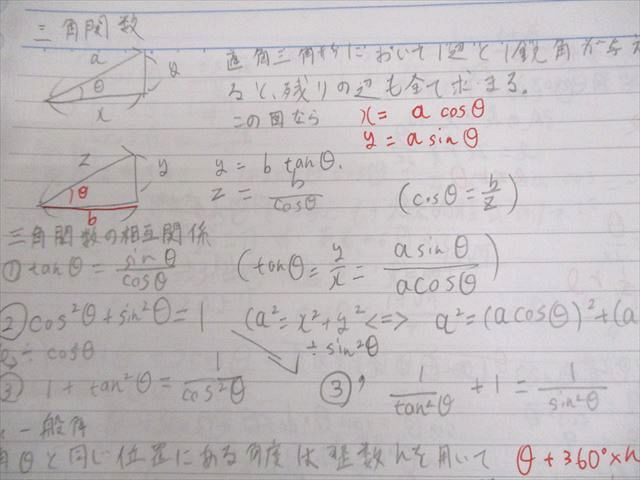 三角関数
a
y
θ
x
直角三角形において1辺と1鋭角が与え
ると、残りの辺も全て求まる。
この図なら
x = a cosθ
y = a sinθ
z
y
θ
b
y = b tanθ.
z = b/cosθ
(cosθ = b/z)
三角関数の相互関係
① tanθ = sinθ/cosθ
(tanθ = y/x = a sinθ/a cosθ)
② cos²θ + sin²θ = 1
(a² = x² + y² <=> a² = (a cosθ)² + (a
÷ cosθ
÷ sin²θ
③ 1 + tan²θ = 1/cos²θ
③' 1/tan²θ + 1 = 1/sin²θ
一般角
角θと同じ位置にある角度は整数nを用いて θ + 360° × n